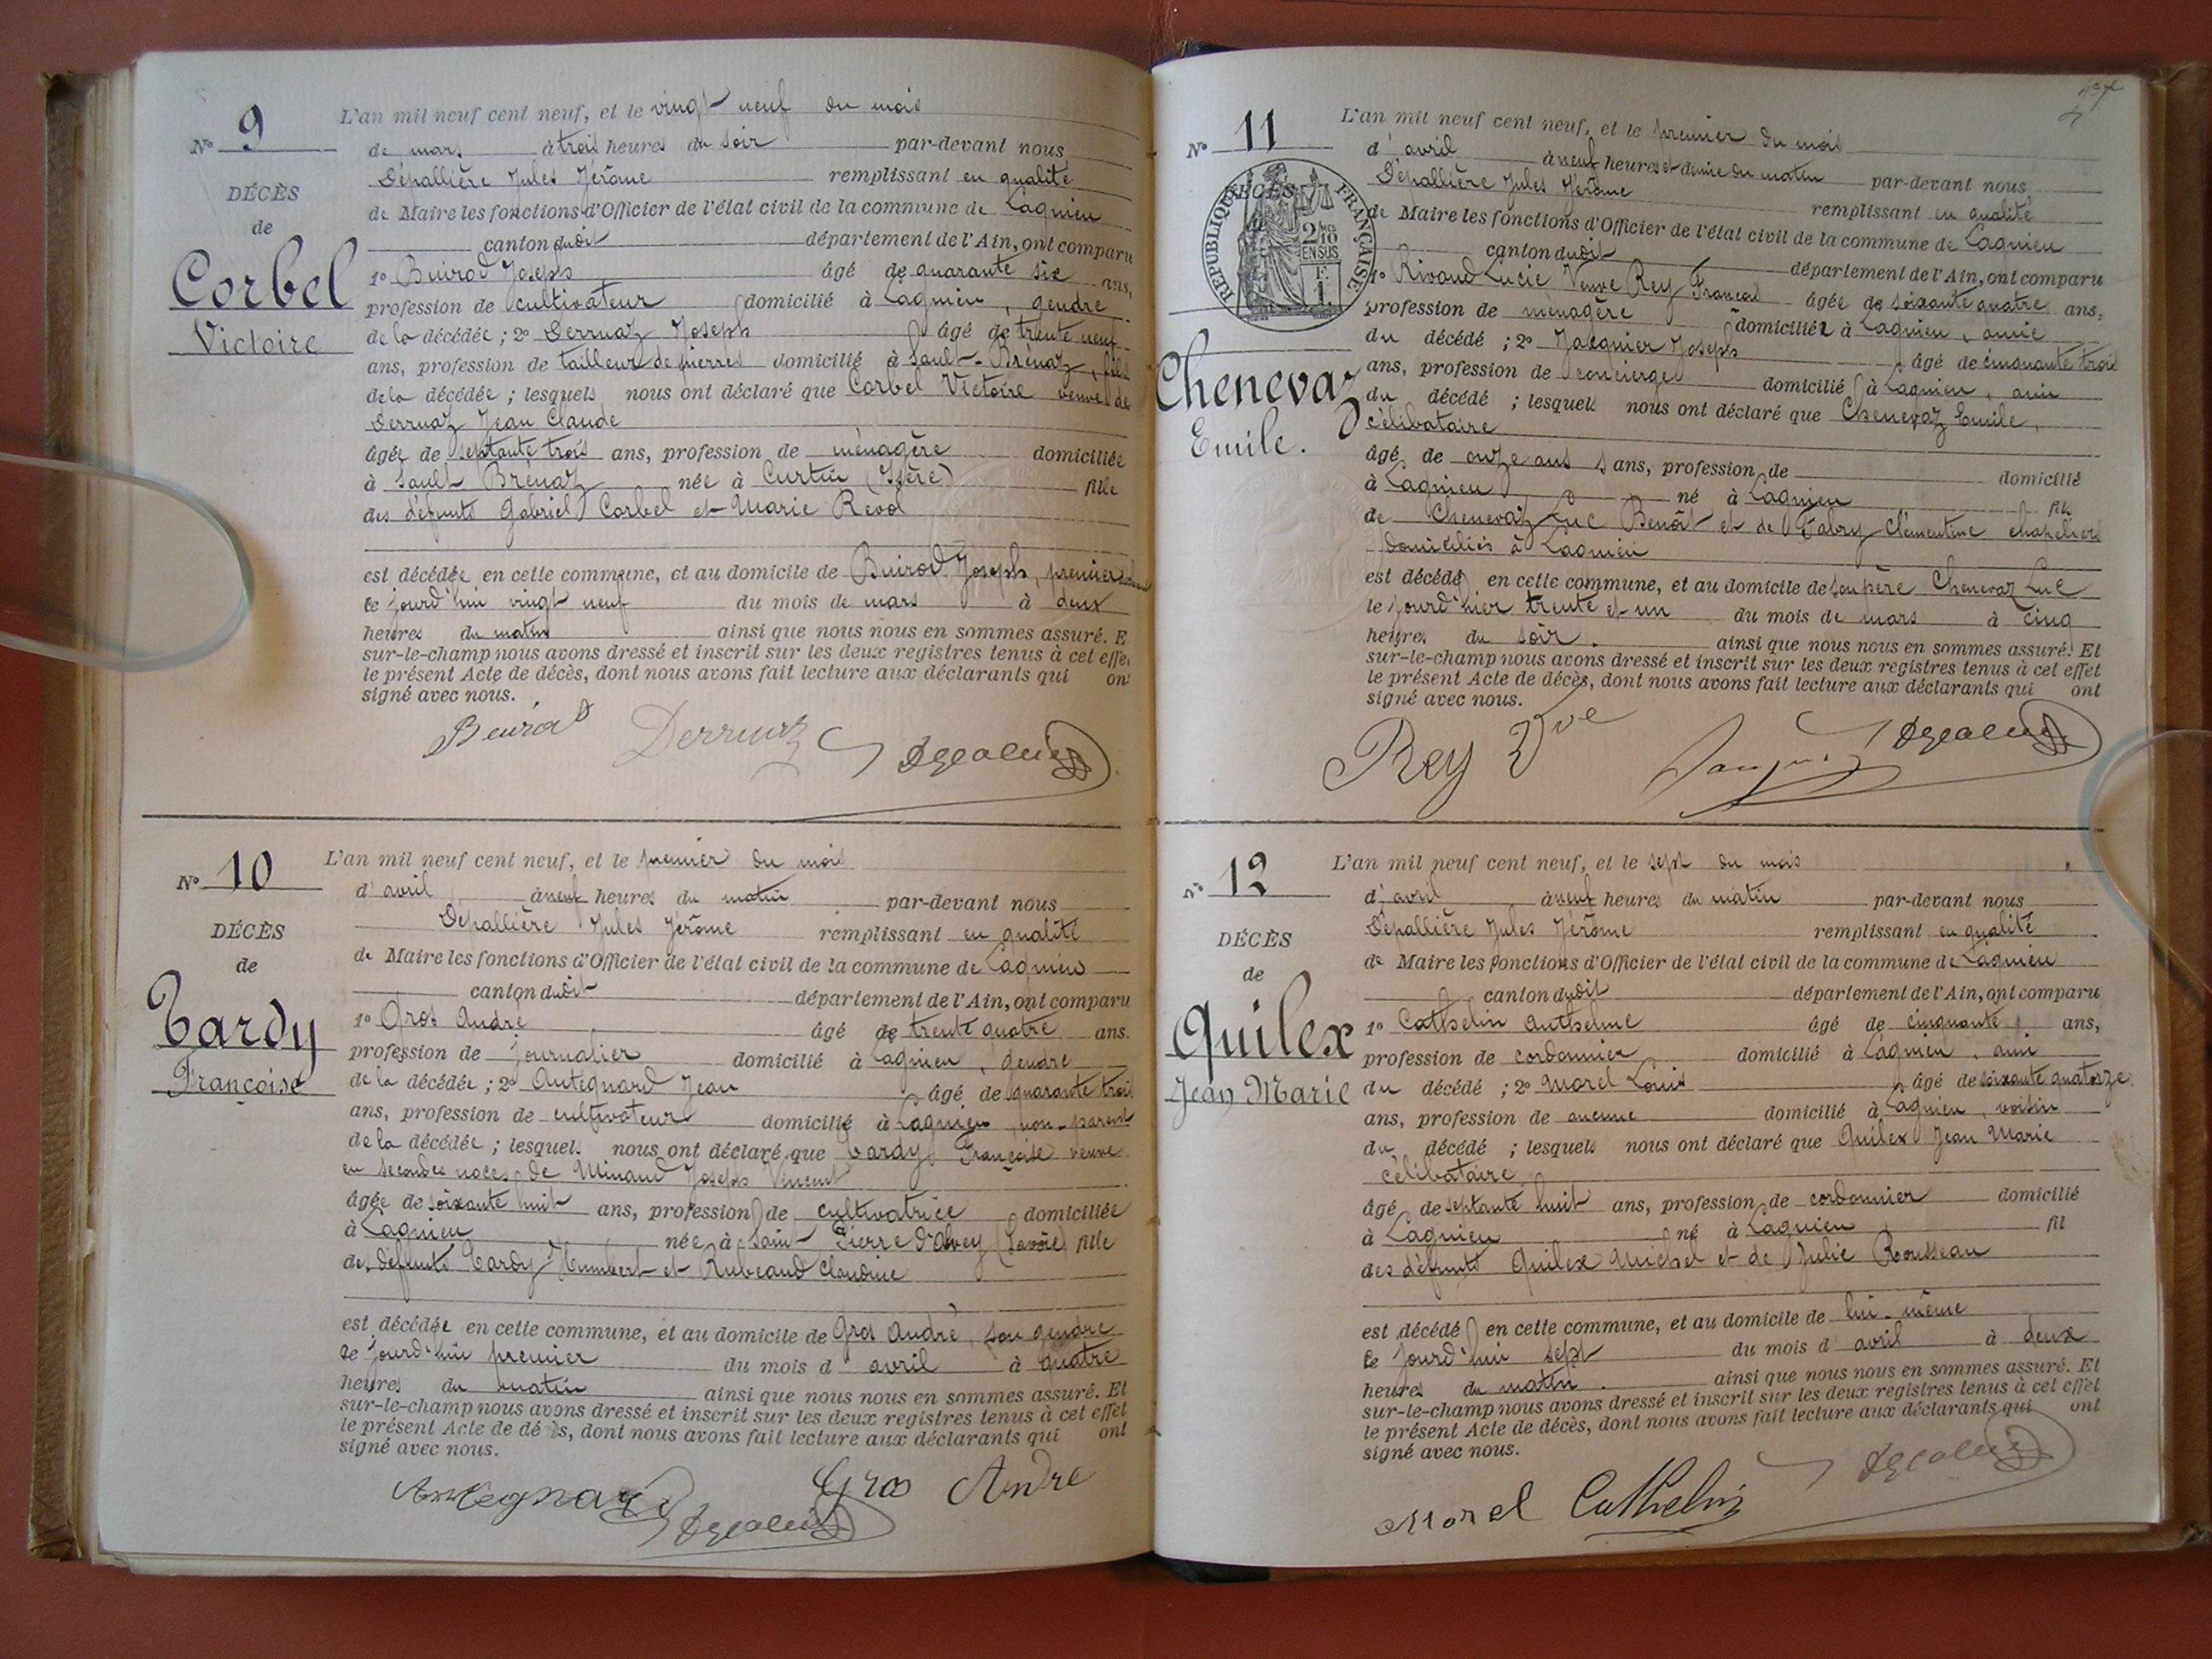 L'an mil neuf cent neuf, et le vingt neuf du mois
N° 9
de mars à trois heures du soir par-devant nous
Dépallière Jules Jérôme remplissant en qualité
DÉCÈS
de Maire les fonctions d'Officier de l'état civil de la commune de Lagnieu
de
canton dudit département de l'Ain, ont comparu
Corbel
1° Buirod Joseph âgé de quarante six ans,
profession de cultivateur domicilié à Lagnieu, gendre
Victoire
de la décédée ; 2° Derruaz Joseph âgé de trente neuf
ans, profession de tailleur de pierres domicilié à Sault-Brénaz, fils
de la décédée ; lesquels nous ont déclaré que Corbel Victoire veuve de
Derruaz Jean Claude
âgée de septante trois ans, profession de ménagère domiciliée
à Sault Brénaz née à Curtin (Isère) fille
des défunts Gabriel Corbel et Marie Revol
est décédée en cette commune, et au domicile de Buirod Joseph, premier
le jourd'hui vingt neuf du mois de mars à deux
heures du matin ainsi que nous nous en sommes assuré. E
sur-le-champ nous avons dressé et inscrit sur les deux registres tenus à cet effe
le présent Acte de décès, dont nous avons fait lecture aux déclarants qui on
signé avec nous.
Derruaz
L'an mil neuf cent neuf, et le premier du mois
N° 10
d'avril à neuf heures du matin par-devant nous
Dépallière Jules Jérôme remplissant en qualité
DÉCÈS
de Maire les fonctions d'Officier de l'état civil de la commune de Lagnieu
de
canton dudit département de l'Ain, ont comparu
Tardy
1° Gros André âgé de trente quatre ans.
profession de Journalier domicilié à Lagnieu, gendre
Françoise
de la décédée ; 2° Antegnard Jean âgé de quarante trois
ans, profession de cultivateur domicilié à Lagnieu, non-parent
de la décédée ; lesquels nous ont déclaré que Tardy Françoise veuve
en secondes noces de Minaud Joseph Vincent
âgée de soixante huit ans, profession de cultivatrice domiciliée
à Lagnieu née à Saint Pierre d'Alvey (Savoie) fille
des défunts Tardy Humbert et Rubeaud Claudine
est décédée en cette commune, et au domicile de Gros André, son gendre
le jourd'hui premier du mois d'avril à quatre
heures du matin ainsi que nous nous en sommes assuré. Et
sur-le-champ nous avons dressé et inscrit sur les deux registres tenus à cet effet
le présent Acte de dé ès, dont nous avons fait lecture aux déclarants qui ont
signé avec nous.
Gros André
Antegnard
L'an mil neuf cent neuf, et le premier du mois
N° 11
d'avril à neuf heures et demie du matin par-devant nous
Dépallière Jules Jérôme remplissant en qualité
DÉCÈS
RÉPUBLIQUE FRANÇAISE
2/10 EN SUS
1 F.
de Maire les fonctions d'Officier de l'état civil de la commune de Lagnieu
canton dudit département de l'Ain, ont comparu
1° Rivaud Lucie Veuve Rey François âgée de soixante quatre ans,
profession de ménagère domiciliée à Lagnieu, amie
du décédé ; 2° Jacquier Joseph âgé de cinquante trois
Chenevaz
ans, profession de concierge domicilié à Lagnieu, ami
du décédé ; lesquels nous ont déclaré que Chenevaz Emile,
Emile.
célibataire
âgé de onze ans ans, profession de domicilié
à Lagnieu né à Lagnieu fils
de Chenevaz Luc Benoît et de Fabry Clémentine chapeliers
domiciliés à Lagnieu
est décédé en cette commune, et au domicile de son père Chenevaz Luc
le jourd'hier trente et un du mois de mars à cinq
heures du soir. ainsi que nous nous en sommes assuré. Et
sur-le-champ nous avons dressé et inscrit sur les deux registres tenus à cet effet
le présent Acte de décès, dont nous avons fait lecture aux déclarants qui ont
signé avec nous.
Rey Vve
L'an mil neuf cent neuf, et le sept du mois
N° 12
d'avril à neuf heures du matin par-devant nous
Dépallière Jules Jérôme remplissant en qualité
DÉCÈS
de Maire les fonctions d'Officier de l'état civil de la commune de Lagnieu
de
canton dudit département de l'Ain, ont comparu
Quilex
1° Cathelin Anthelme âgé de cinquante ans,
profession de cordonnier domicilié à Lagnieu, ami
Jean Marie
du décédé ; 2° Morel Louis âgé de soixante quatorze
ans, profession de aucune domicilié à Lagnieu, voisin
du décédé ; lesquels nous ont déclaré que Quilex Jean Marie
célibataire
âgé de septante huit ans, profession de cordonnier domicilié
à Lagnieu né à Lagnieu fils
des défunts Quilex Michel et de Julie Rousseau
est décédé en cette commune, et au domicile de lui-même
le jourd'hui sept du mois d'avril à deux
heures du matin. ainsi que nous nous en sommes assuré. Et
sur-le-champ nous avons dressé et inscrit sur les deux registres tenus à cet effet
le présent Acte de décès, dont nous avons fait lecture aux déclarants qui ont
signé avec nous.
Morel Cathelin